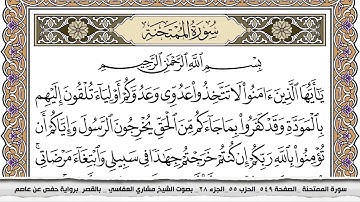 سورة الممتحنة
بِسْمِ اللَّهِ الرَّحْمَٰنِ الرَّحِيمِ
يَٰٓأَيُّهَا ٱلَّذِينَ ءَامَنُوا۟ لَا تَتَّخِذُوا۟ عَدُوِّى وَعَدُوَّكُمْ أَوْلِيَآءَ تُلْقُونَ إِلَيْهِم
بِٱلْمَوَدَّةِ وَقَدْ كَفَرُوا۟ بِمَا جَآءَكُم مِّنَ ٱلْحَقِّ يُخْرِجُونَ ٱلرَّسُولَ وَإِيَّاكُمْ أَن
تُؤْمِنُوا۟ بِٱللَّهِ رَبِّكُمْ إِن كُنتُمْ خَرَجْتُمْ جِهَٰدًا فِى سَبِيلِى وَٱبْتِغَآءَ مَرْضَاتِى
سورة الممتحنة _ الصفحة ٥٤٩ _ الحزب ٥٥ _ الجزء ٢٨ _ بصوت الشيخ مشاري العفاسي _ بالقصر برواية حفص عن عاصم